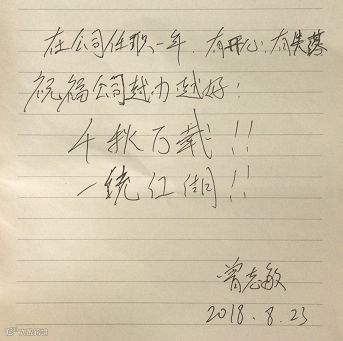 在公司任职一年.有开心.有失落
祝福公司越办越好!
千秋万载!!
一统江湖!!
曾志敏
2018.8.23